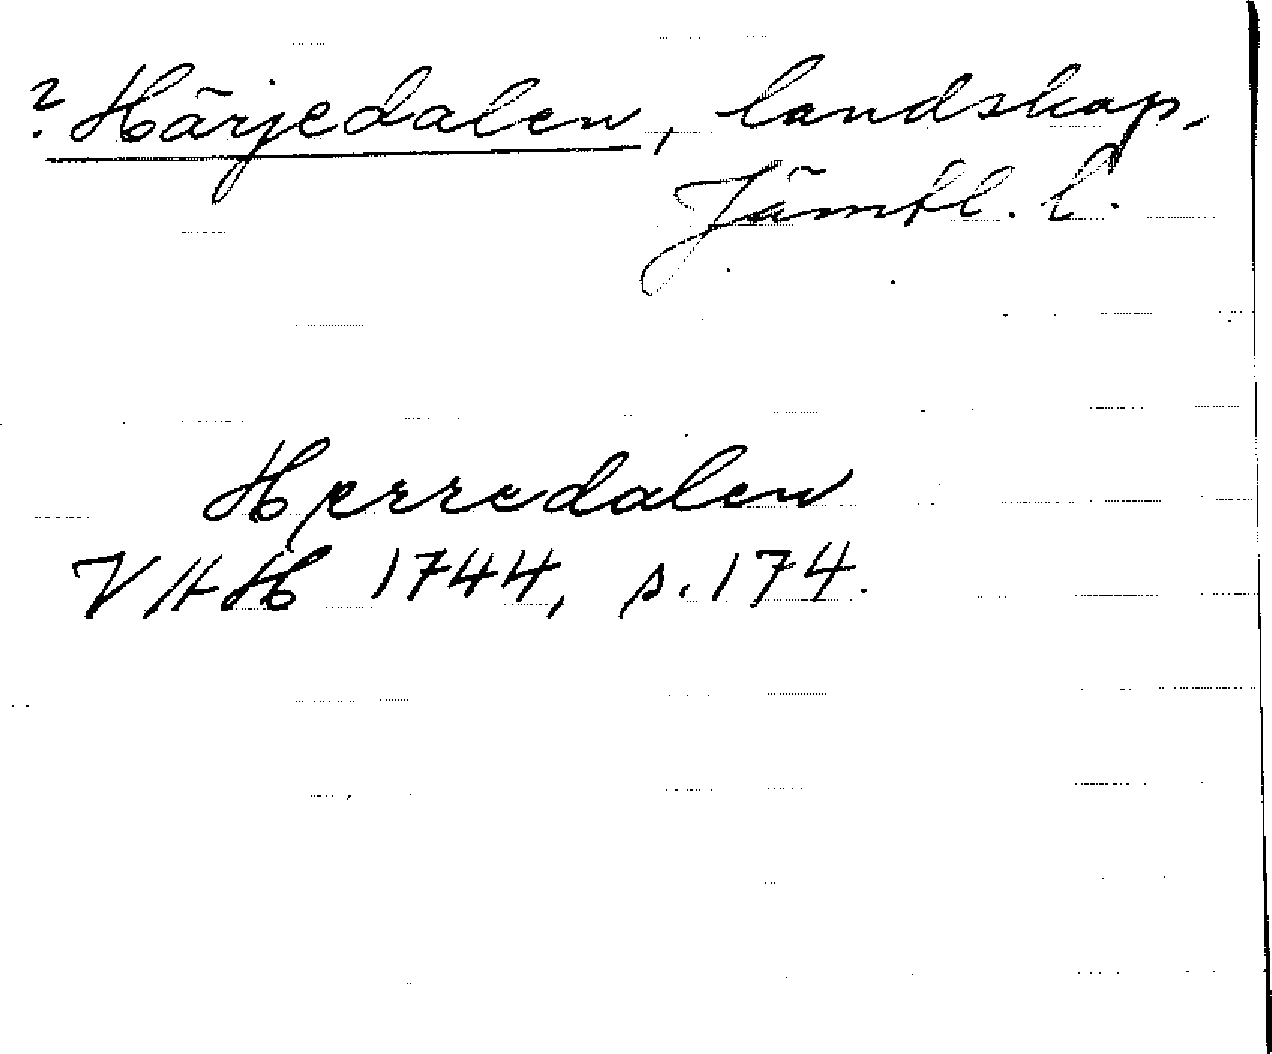 ? Härjedalen, landskap,
Jämtl. l.
Herredalen
VHH 1744, s. 174.